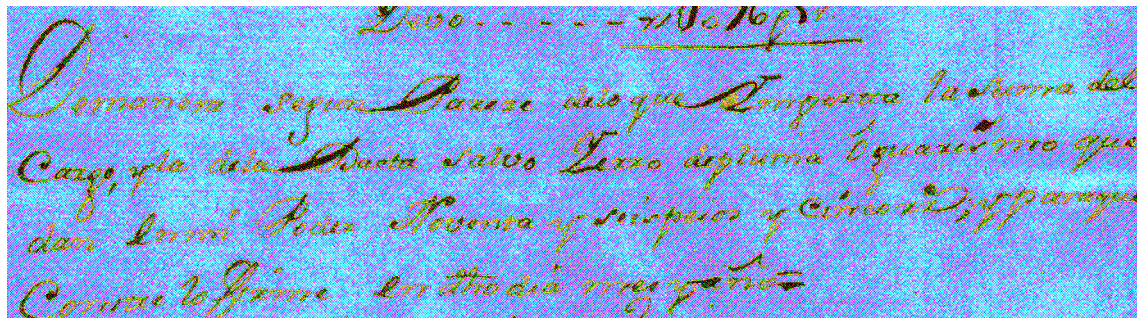 Demanera segun Pareze delo que Ymporta la suma del
Cargo, y la dela Datta salvo Yerro depluma Ô guarismo que
dan en mi Poder Noventa y seis pesos y cinco rs, y paraque
Conste lo ffirme en dtho dia mes y año=